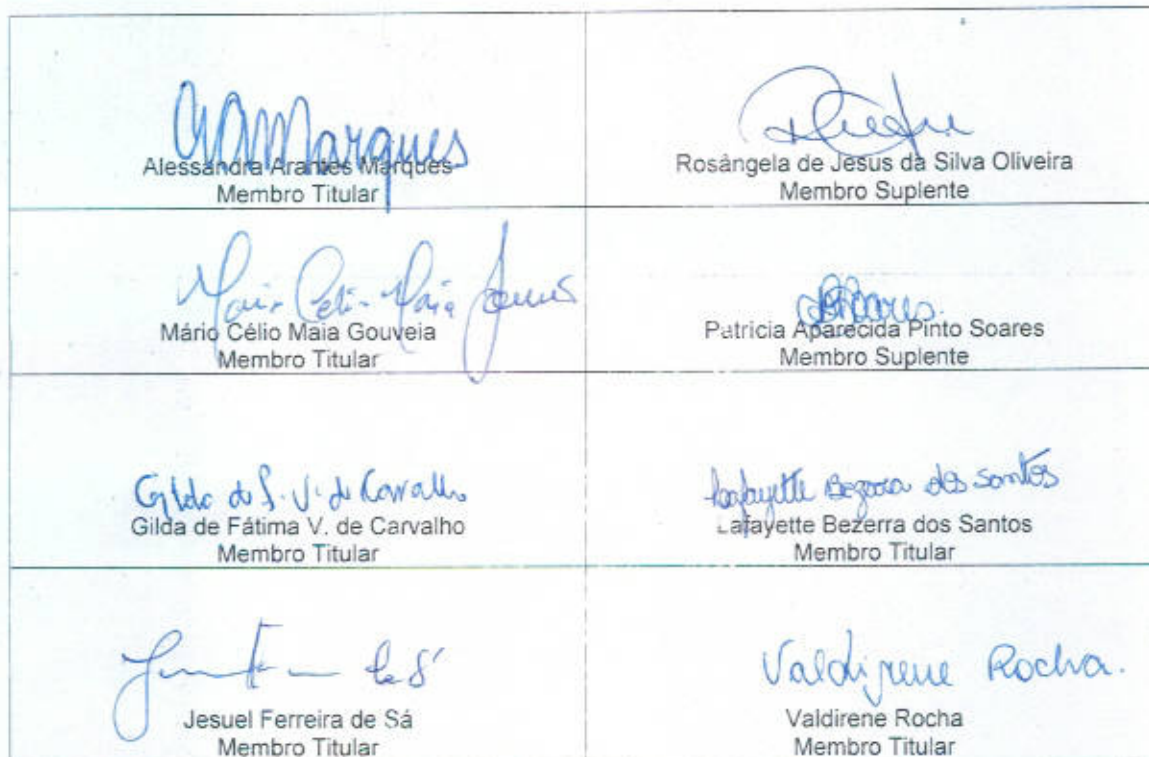 Marques
Alessandra Arantes Marques
Membro Titular
Rosângela de Jesus da Silva Oliveira
Membro Suplente
Mário Célio Maia
Mário Célio Maia Gouveia
Membro Titular
Soares
Patricia Aparecida Pinto Soares
Membro Suplente
Gilda de F. V. de Carvalho
Gilda de Fátima V. de Carvalho
Membro Titular
Lafayette Bezerra dos Santos
Lafayette Bezerra dos Santos
Membro Titular
de Sá
Jesuel Ferreira de Sá
Membro Titular
Valdirene Rocha.
Valdirene Rocha
Membro Titular